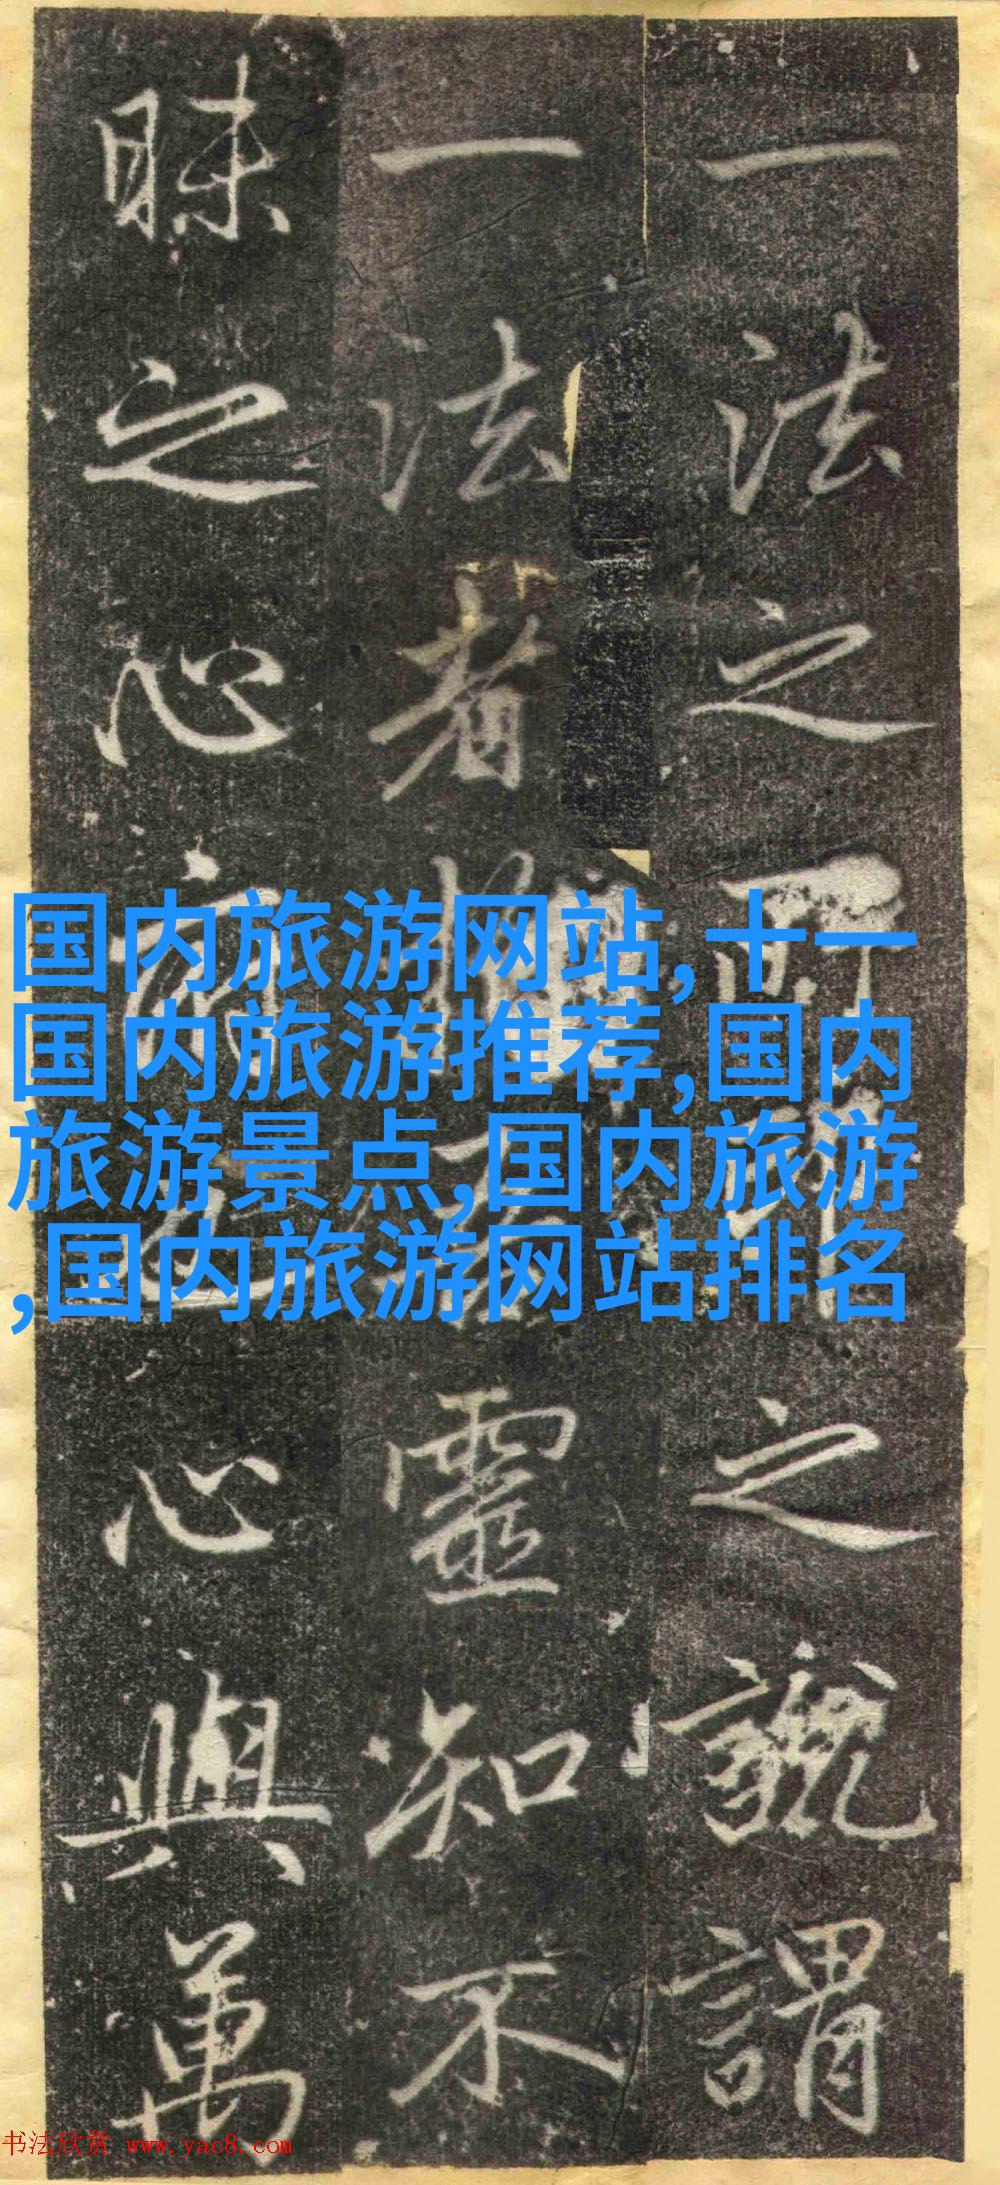 一法之之謂
一法者靈知不
昧之心心與萬
国内旅游网站, 十一
国内旅游推荐,国内
旅游景点,国内旅游
,国内旅游网站排名
书法欣赏 www.yac8.com